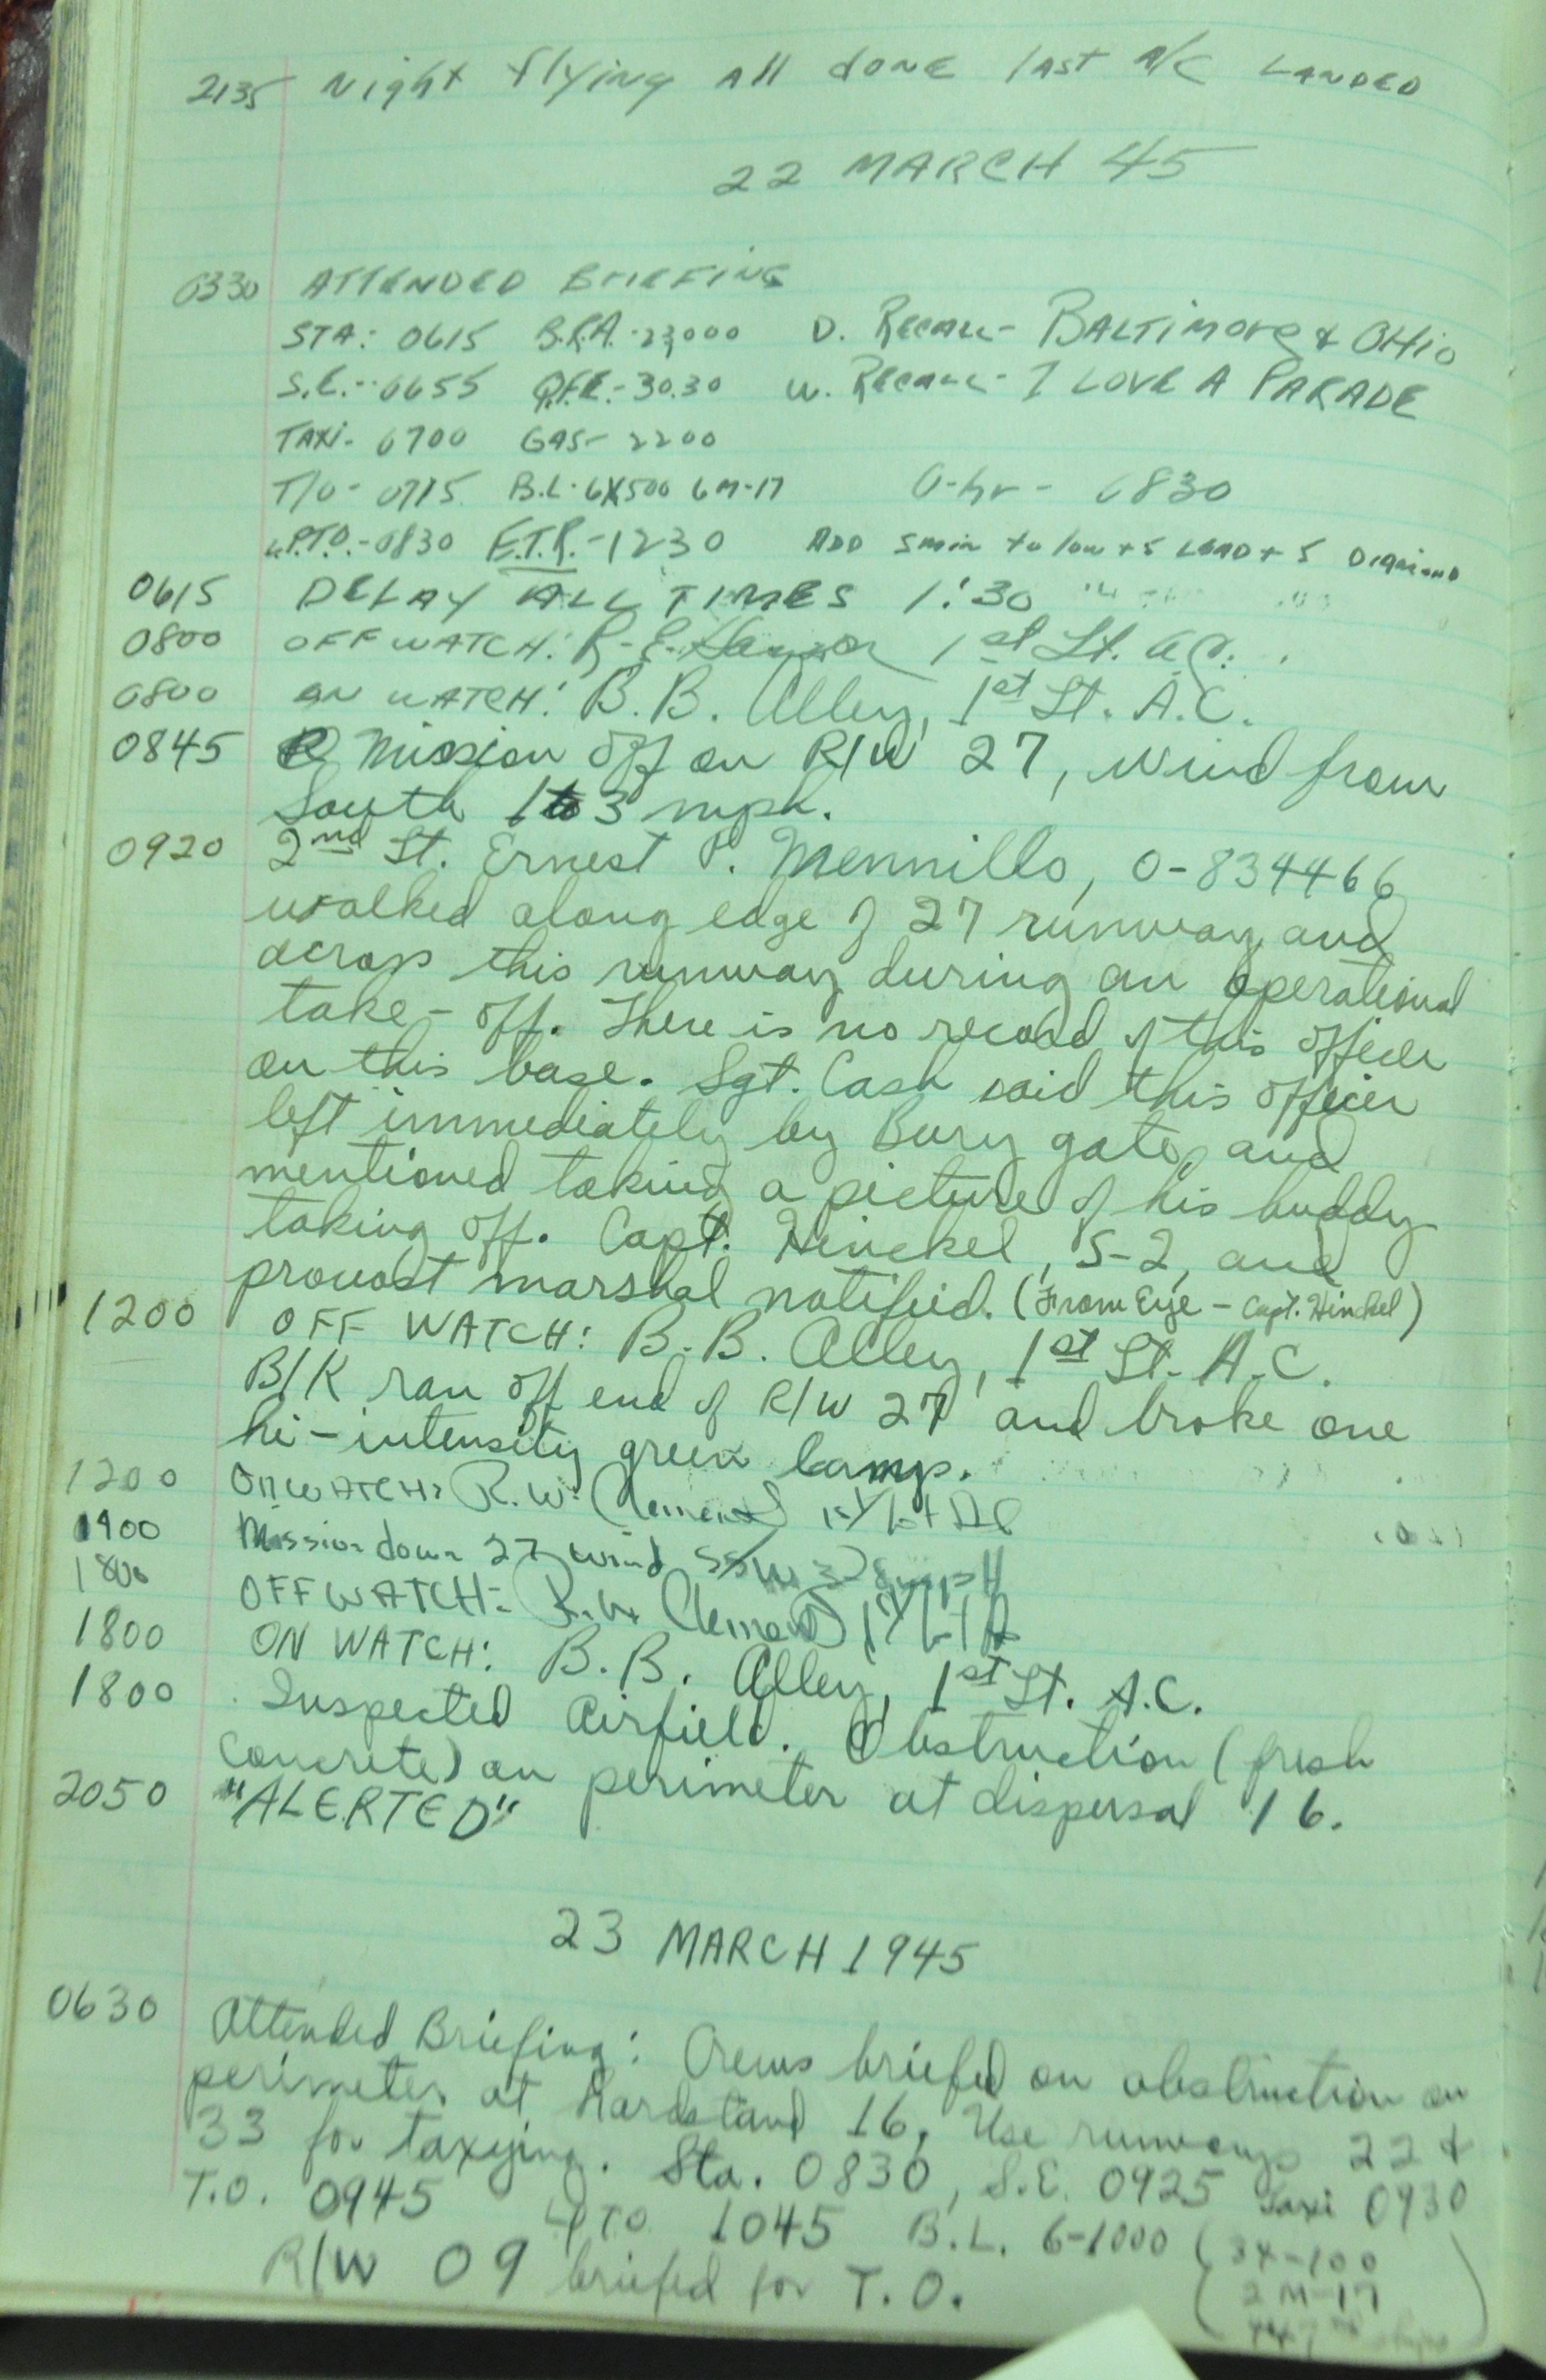 2135 Night flying all done last A/C LANDED
22 MARCH 45
0330 ATTENDED BRIEFING
STA: 0615 B.R.A.-23,000 D. Recall- BALTIMORE & OHIO
S.E.-0655 Q.F.E.-30.30 W. Recall- I LOVE A PARADE
TAXI- 0700 GAS- 2200
T/O- 0715 B.L.-6X500 6M-17 0-hr- 0830
L.P.T.O.-0830 E.T.R.-1230 ADD 5min to low + 5 LEAD + 5 Diamond
0615 DELAY ALL TIMES 1:30
0800 OFF WATCH: R.E. 1st Lt. A.C.
0800 ON WATCH: B.B. Alley, 1st Lt. A.C.
0845 Mission off on R/W 27, wind from
South 1 to 3 mph.
0920 2nd Lt. Ernest P. Mennillo, O-834466
walked along edge of 27 runway and
across this runway during an operational
take-off. There is no record of this officer
on this base. Sgt. Cash said this officer
left immediately by Bury gate, and
mentioned taking a picture of his buddy
taking off. Capt. Hinckel, S-2, and
provost marshal notified. (From Eye - Capt. Hinckel)
1200 OFF WATCH: B.B. Alley, 1st Lt. A.C.
B/K ran off end of R/W 27 and broke one
hi-intensity green lamp.
1200 ON WATCH: R.W. Clement 1st Lt AC
1400 Mission down 27 wind SSW
1800 OFF WATCH: R.W. Clement 1st Lt
1800 ON WATCH: B.B. Alley, 1st Lt. A.C.
1800 Inspected Airfield. Obstruction (fresh
concrete) on perimeter at dispersal 16.
2050 "ALERTED"
23 MARCH 1945
0630 Attended Briefing: Crews briefed on obstruction on
perimeter at hardstand 16. Use runways 22 &
33 for taxying. Sta. 0830, S.E. 0925 Taxi 0930
T.O. 0945 LPTO 1045 B.L. 6-1000 (34-100
R/W 09 briefed for T.O. (2 M-17
ships